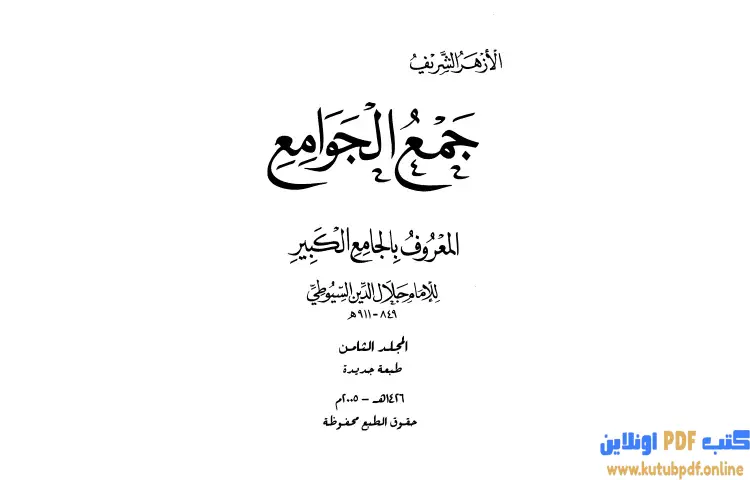 الأزهر الشريف
جَمْعُ الْجَوَامِعِ
المعْرُوفُ بِالجامِعِ الكَبِيرِ
للإمام جلال الدين السيوطي
٨٤٩ - ٩١١ هـ
المجلد الثامن
طبعة جديدة
١٤٢٦هـ - ٢٠٠٥م
حقوق الطبع محفوظة
كتب PDF اونلاين
www.kutubpdf.online